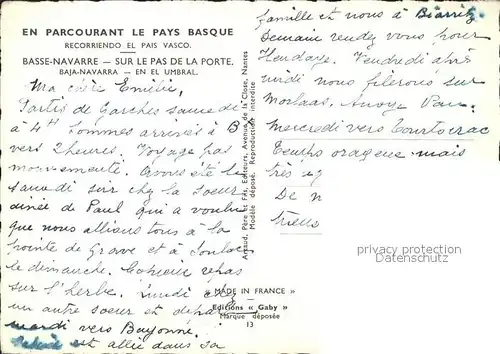 EN PARCOURANT LE PAYS BASQUE
RECORRIENDO EL PAIS VASCO.
BASSE-NAVARRE — SUR LE PAS DE LA PORTE.
BAJA-NAVARRA — EN EL UMBRAL.
Ma chère Emilie,
Partis de Garches samedi
à 4H sommes arrivés à B
vers 2 heures. Voyage pas
mouvementé. Avons été le
samedi sur chez la soeur
ainée de Paul qui a voulu
que nous allions tous à la
pointe de Grave et à Soulac
le dimanche. Copieux repas
sur l'herbe. Lundi chez
un autre soeur et dépa
mardi vers Bayonne.
est allée dans sa
famille et nous à Biarritz
Demain rendez vous pour
Hendaye. Vendredi après
midi nous filerons sur
Morlaas. Pau.
Mercredi vers Tourtoirac
Temps orageux mais
très
De n
Arnaud, Père et Fils, Éditeurs, Avenue de la Close, Nantes
Modèle déposé. Reproduction interdite
« MADE IN FRANCE »
Editions « Gaby »
Marque déposée
13
privacy protection